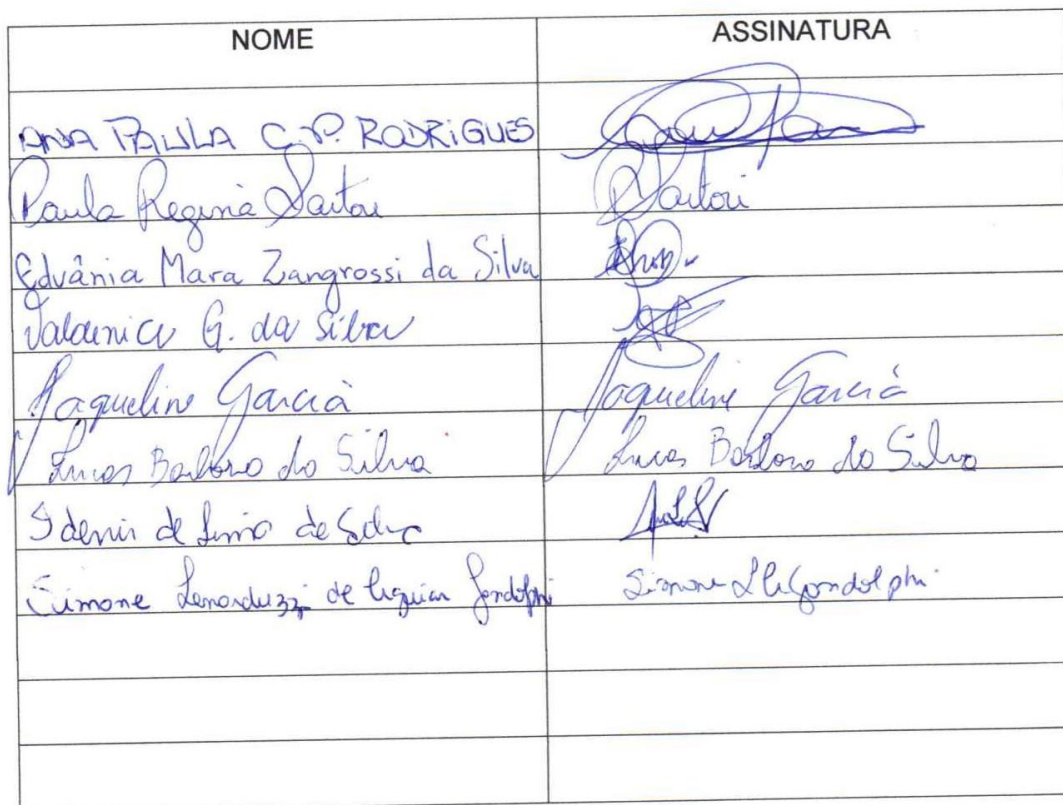 NOME ASSINATURA
ANA PAULA C. P. RODRIGUES
Paula Regina Sartori PSartori
Edvânia Mara Zangrossi da Silva
Valdenice G. da Silva
Jaqueline Garcia Jaqueline Garcia
Lucas Barbosa da Silva Lucas Barbosa da Silva
Idenir de Lima da Silva
Simone Lenarduzzi de Simone